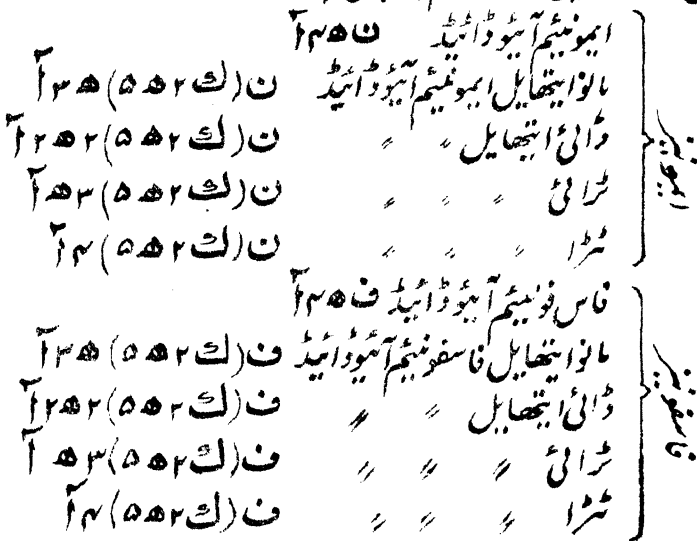 ایمونیئم آئیوڈائیڈ ن ھ۴ آ
مانو ایتھایل ایمونیئم آئیوڈائیڈ ن(ک۲ ھ۵) ھ۳ آ
ڈائی ایتھایل 〃 〃 ن(ک۲ ھ۵)۲ ھ۲ آ
ٹرائی 〃 〃 〃 ن(ک۲ ھ۵)۳ ھ آ
ٹٹرا 〃 〃 〃 ن(ک۲ ھ۵)۴ آ
فاس فونیئم آئیوڈائیڈ ف ھ۴ آ
مانو ایتھایل فاسفونیئم آئیوڈائیڈ ف(ک۲ ھ۵) ھ۳ آ
ڈائی ایتھایل 〃 〃 ف(ک۲ ھ۵)۲ ھ۲ آ
ٹرائی 〃 〃 〃 ف(ک۲ ھ۵)۳ ھ آ
ٹٹرا 〃 〃 〃 ف(ک۲ ھ۵)۴ آ